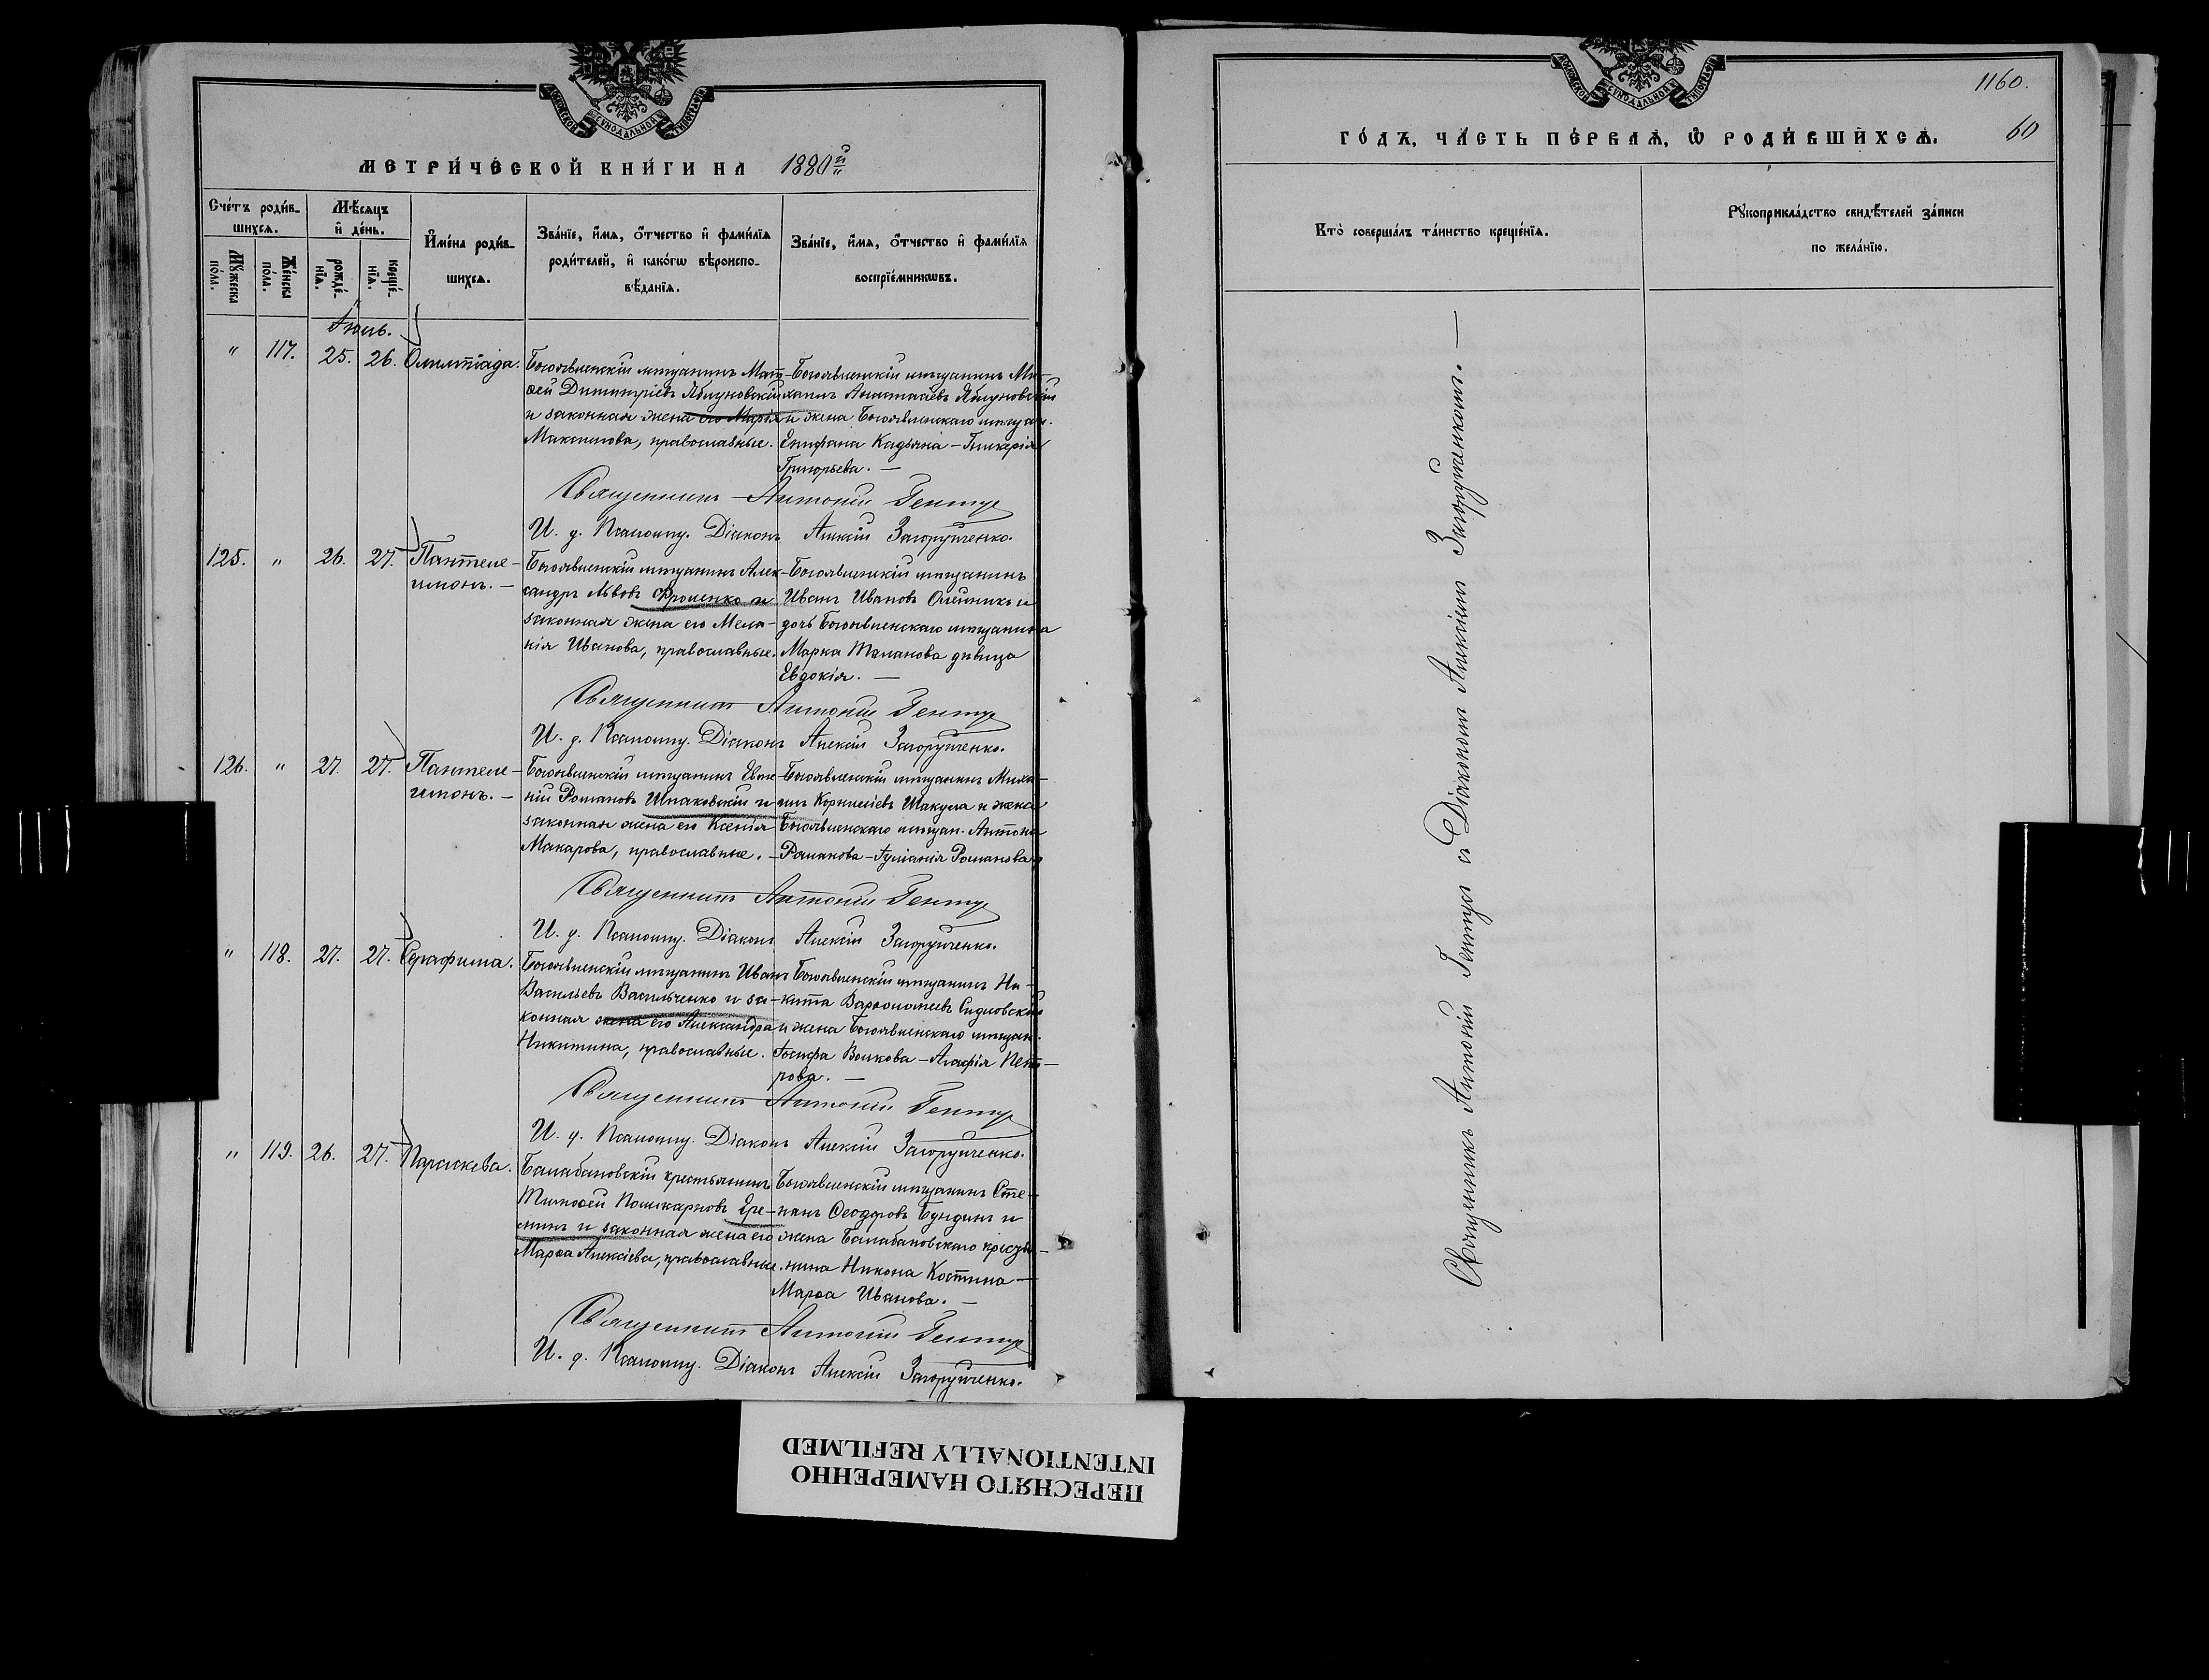 МЕТРИ́ЧЕСКОЙ КНИ́ГИ НА 1880й
Сче́тъ роди́в-
шихсѧ.
Мѣ́сѧцъ
и҆ де́нь.
Мꙋ́жеска
по́ла.
Же́нска
по́ла.
рожде́-
нїѧ.
креще́-
нїѧ.
И҆мена̀ роди́в-
шихсѧ.
Зва́нїе, и҆́мѧ, ѻ҆́тчество и҆ фамѝлїѧ
роди́телей, и҆ како́гѡ вѣроиспо-
вѣ́данїѧ.
Зва́нїе, и҆́мѧ, ѻ҆́тчество и҆ фамѝлїѧ
воспрїе́мникѡвъ.
Іюль.
" 117. 25. 26. Олимпіада.
Богоявленскій мѣщанинъ Мат-
ѳей Димитріевъ Яблуновскій
и законная жена его Марія
Максимова, православные.
Богоявленскій мѣщанинъ Ми-
хаилъ Анастасіевъ Яблуновскій
и жена Богоявленскаго мѣщан.
Епифана Кадьяна - Гликерія
Григорьева. —
Священникъ Антоній Гентуз
И. д. Псаломщ. Діаконъ Алексій Загорушченко.
125. " 26. 27. Пантеле-
имонъ. —
Богоявленскій мѣщанинъ Алек-
сандръ Львовъ Фроленко и
законная жена его Мела-
нія Иванова, православные.
Богоявленскій мѣщанинъ
Иванъ Ивановъ Олейникъ и
дочь Богоявленскаго мѣщанина
Марка Таланова дѣвица
Евдокія. —
Священникъ Антоній Гентуз
И. д. Псаломщ. Діаконъ Алексій Загорушченко.
126. " 27. 27. Пантеле-
имонъ. —
Богоявленскій мѣщанинъ Евге-
ній Романовъ Шпаковскій и
законная жена его Ксенія
Макарова, православные. —
Богоявленскій мѣщанинъ Миха-
илъ Корниліевъ Шакула и жена
Богоявленскаго мѣщан. Антона
Романова - Іуліанія Романова.
Священникъ Антоній Гентуз
И. д. Псаломщ. Діаконъ Алексій Загорушченко.
" 118. 27. 27. Серафима.
Богоявленскій мѣщанинъ Иванъ
Васильевъ Васильченко и за-
конная жена его Александра
Никитина, православные.
Богоявленскій мѣщанинъ Ни-
кита Варѳоломеевъ Сидловскій
и жена Богоявленскаго мѣщан.
Іосифа Волкова - Агафія Пет-
рова. —
Священникъ Антоній Гентуз
И. д. Псаломщ. Діаконъ Алексій Загорушченко.
" 119. 26. 27. Параскева.
Балабановскій крестьянинъ
Тимоѳей Поликарповъ Ере-
минъ и законная жена его
Марѳа Алексіева, православные.
Богоявленскій мѣщанинъ Сте-
панъ Ѳеодоровъ Бундинъ и
жена Балабановскаго крестья-
нина Никона Костина —
Марѳа Иванова. —
Священникъ Антоній Гентуз
И. д. Псаломщ. Діаконъ Алексій Загорушченко.
1160.
60
ГО́ДЪ, ЧА́СТЬ ПЕ́РВАѦ, Ѡ҆ РОДИ́ВШИХСѦ.
Кто̀ соверша́лъ та́инство креще́нїѧ.
Рꙋкоприкла́дство свидѣ́телей за́писи
по жела́нїю.
Священникъ Антоній Гентуз съ Діакономъ Алексіемъ Загорушченкомъ. —
ПЕРЕСНЯТО НАМЕРЕННО
INTENTIONALLY REFILMED